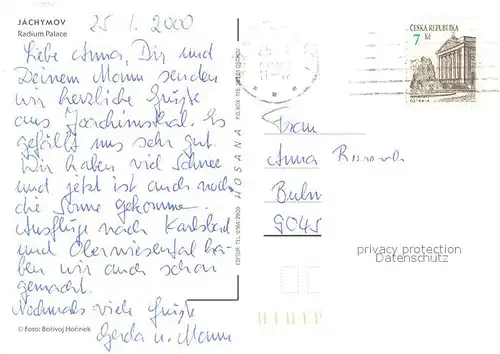 JÁCHYMOV
Radium Palace
25 1. 2000
Liebe Anna, Dir und
Deinem Mann senden
wir herzliche Grüße
aus Joachimsthal. Es
gefällt uns sehr gut.
Wir haben viel Schnee
und jetzt ist auch noch
die Sonne gekommen.
Ausflüge nach Karlsbad
und Oberwiesental ha-
ben wir auch schon
gemacht.
Nochmals viele Grüße
Gerda u. Mann
© Foto: Bořivoj Hořínek
HOSANA
ČESKÁ REPUBLIKA
7 Kč
Frau
Anna
privacy protection
Datenschutz